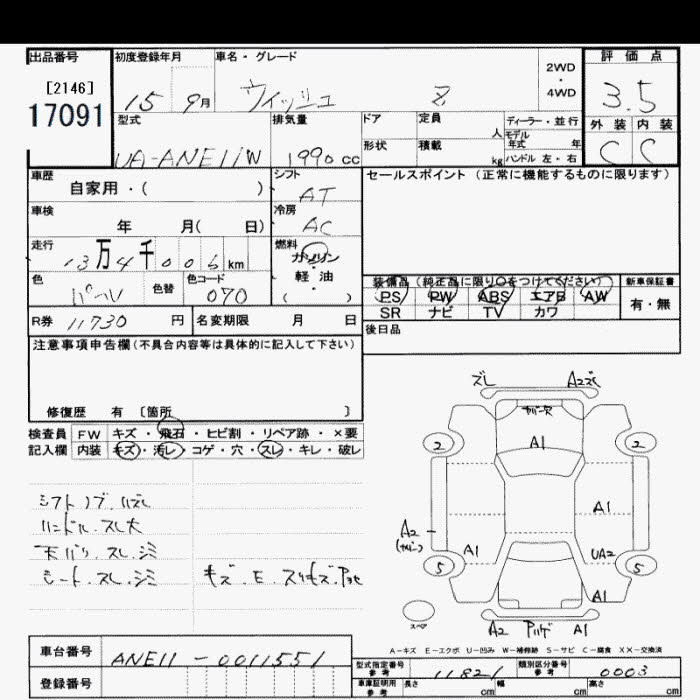 出品番号
[2146]
17091
初度登録年月
15 9月
車名・グレード
ウィッシュ Z
2WD
・
4WD
評価点
3.5
型式
UA-ANE11W
排気量
1990 cc
ドア
定員
人
形状
積載
kg
ディーラー・並行
モデル年式 年
ハンドル 左・右
外装 内装
C C
車歴
自家用・( )
シフト
AT
セールスポイント (正常に機能するものに限ります)
車検
年 月( 日)
冷房
AC
走行
13万4千006km
燃料
ガソリン
・
軽油
( )
色
パール
色替
色コード
070
装備品 (純正品に限り○をつけてください)
PS PW ABS エアB AW
SR ナビ TV カワ
新車保証書
有・無
R券 11730 円
名変期限 月 日
後日品
注意事項申告欄(不具合内容等は具体的に記入して下さい)
修復歴 有 〔箇所 〕
検査員
記入欄
FW キズ・飛石・ヒビ割・リペア跡・×要
内装 キズ・汚レ・コゲ・穴・スレ・キレ・破レ
シフトノブ.ハズレ
ハンドル.スレ大
天バリ.スレ.シミ
シート.スレ.シミ
ズレ A2ズレ
A1
2 2
A1
A2
A1
UA2
5 5
A1
スペア
A2 A1
A-キズ E-エクボ U-凹み W-補修跡 S-サビ C-腐食 XX-交換済
車台番号
ANE11-0011551
登録番号
型式指定番号
参考
11821
類別区分番号
参考
0003
車庫証明用
参考
長さ cm
幅 cm
高さ cm